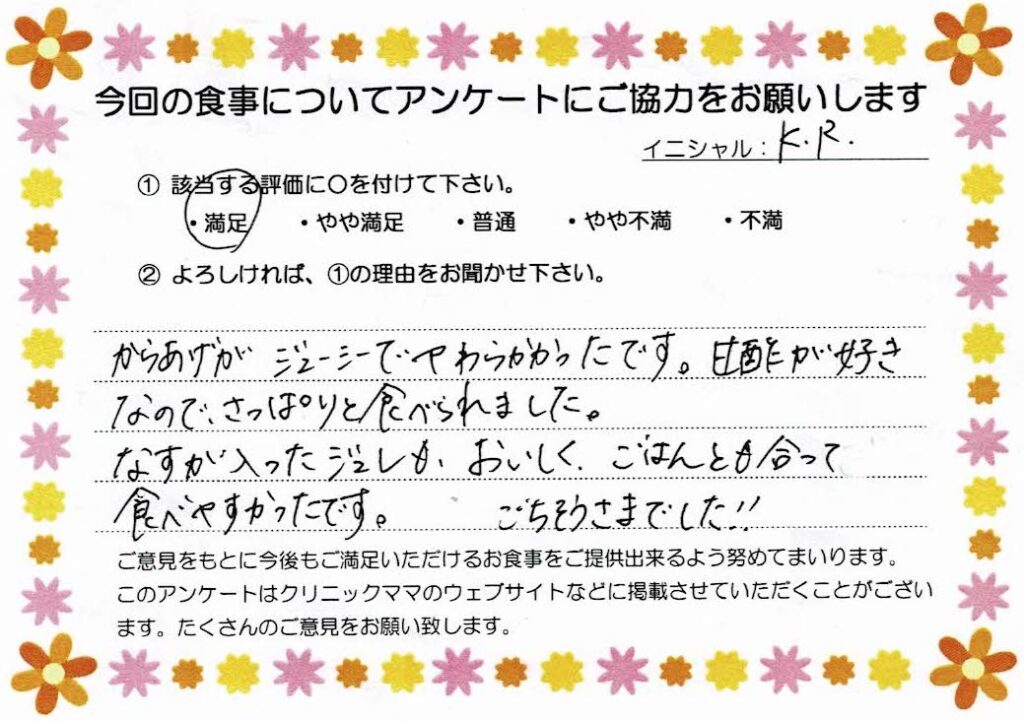 今回の食事についてアンケートにご協力をお願いします
イニシャル：K.R.
① 該当する評価に〇を付けて下さい。
・満足 ・やや満足 ・普通 ・やや不満 ・不満
② よろしければ、①の理由をお聞かせ下さい。
からあげが ジューシーでやわらかかったです。甘酢が好き
なので、さっぱりと食べられました。
なすが入ったジュレも、おいしく、ごはんとも合って
食べやすかったです。 ごちそうさまでした!!
ご意見をもとに今後もご満足いただけるお食事をご提供出来るよう努めてまいります。
このアンケートはクリニックママのウェブサイトなどに掲載させていただくことがござい
ます。たくさんのご意見をお願い致します。